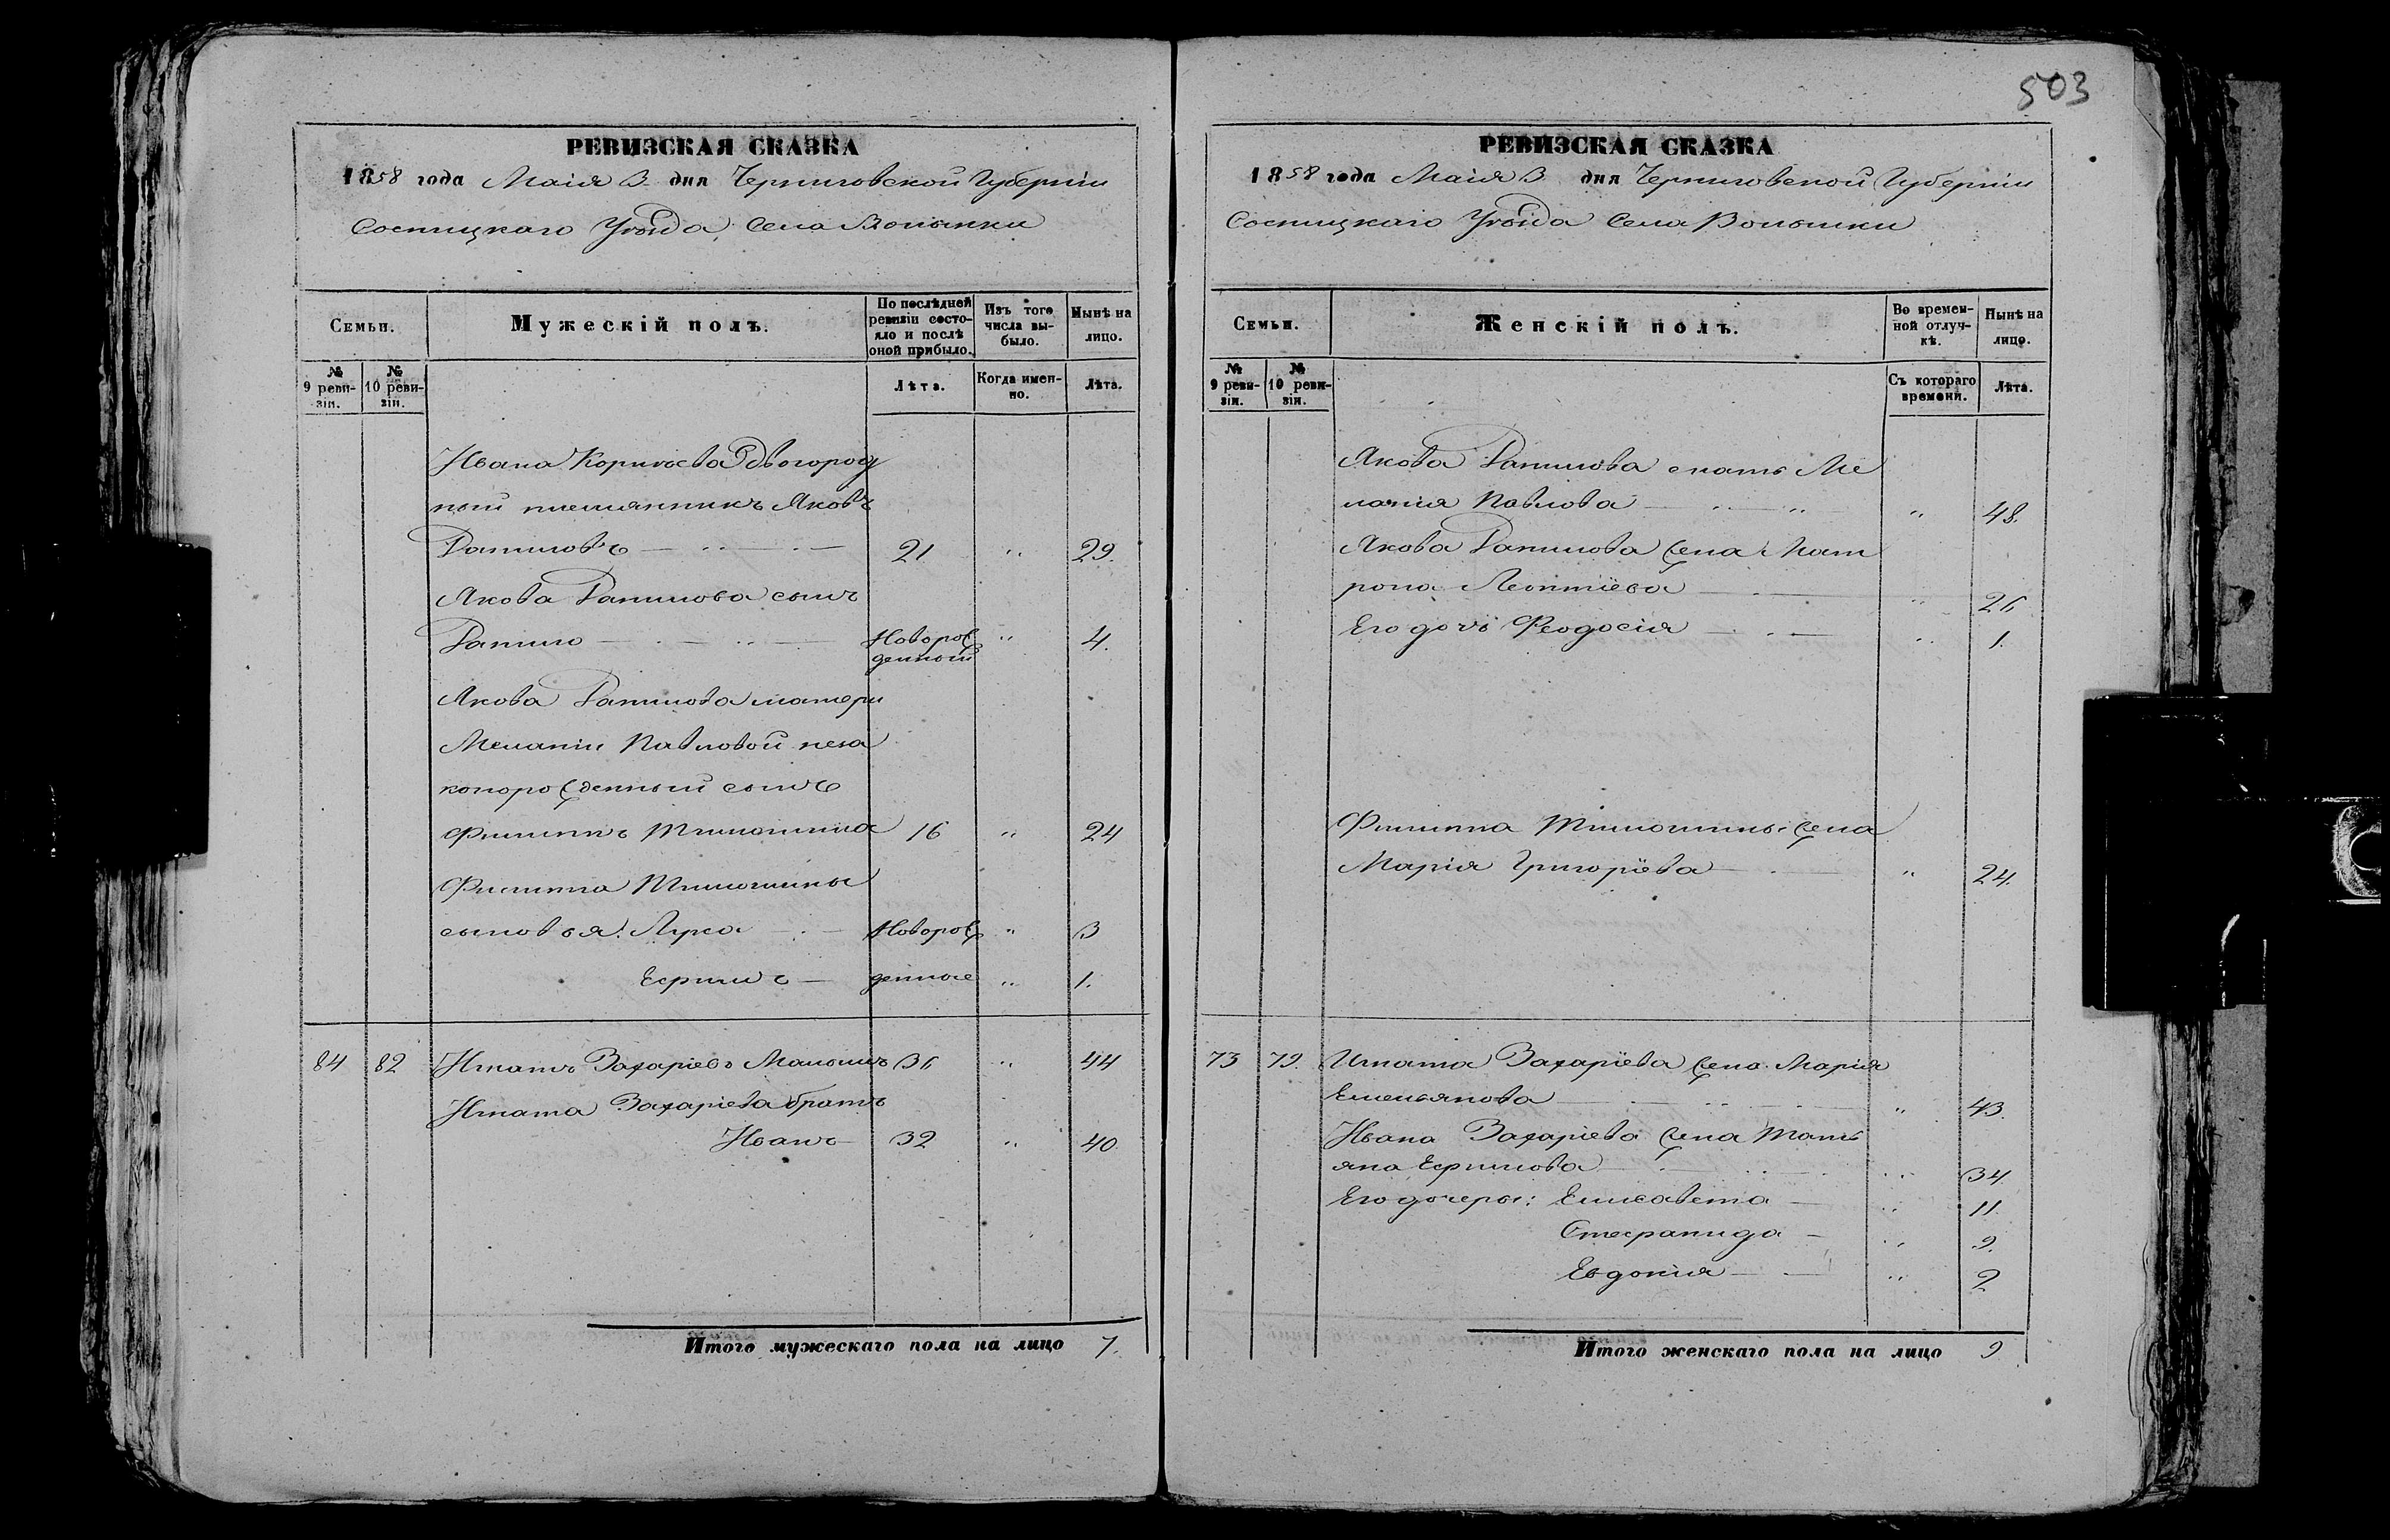 503
РЕВИЗСКАЯ СКАЗКА
1858 года Маія 3 дня Черниговской Губерніи
Сосницкаго Уѣзда, Села Волынки
Семьи.
Мужескій полъ.
По послѣдней ревизіи состояло и послѣ оной прибыло.
Изъ того числа выбыло.
Нынѣ на лицо.
№ 9 ревизіи.
№ 10 ревизіи.
Лѣта.
Когда именно.
Лѣта.
Ивана Корнѣева двогород
ный племянникъ Яковъ
Даниловъ 21 " 29.
Якова Данилова сынъ
Данило Новорож " 4.
денный
Якова Данилова матери
Меланіи Павловой неза
конорожденный сынъ
Филиппъ Тимошина 16 " 24
Филиппа Тимошины
сыновья: Лука Новорож " 3
Ефимъ денные " 1.
84 82 Игнатъ Захаріевъ Малышъ 36 " 44
Игната Захаріева братъ
Иванъ 32 " 40
Итого мужескаго пола на лицо 7.
РЕВИЗСКАЯ СКАЗКА
1858 года Маія 3 дня Черниговской Губерніи
Сосницкаго Уѣзда Села Волынки
Семьи.
Женскій полъ.
Во временной отлучкѣ.
Нынѣ на лицо.
№ 9 ревизіи.
№ 10 ревизіи.
Съ котораго времени.
Лѣта.
Якова Данилова мать Ме
ланія Павлова " 48.
Якова Данилова жена Мат
рона Леонтіева " 26
Его дочь Феодосія " 1.
Филиппа Тимошины жена
Марія Григоріева " 24.
73 72. Игната Захаріева жена Марія
Емельянова " 43.
Ивана Захаріева жена Тать
яна Ефимова " 34.
Его дочери: Елисавета " 11.
Стефанида " 9.
Евдокія " 2
Итого женскаго пола на лицо 9